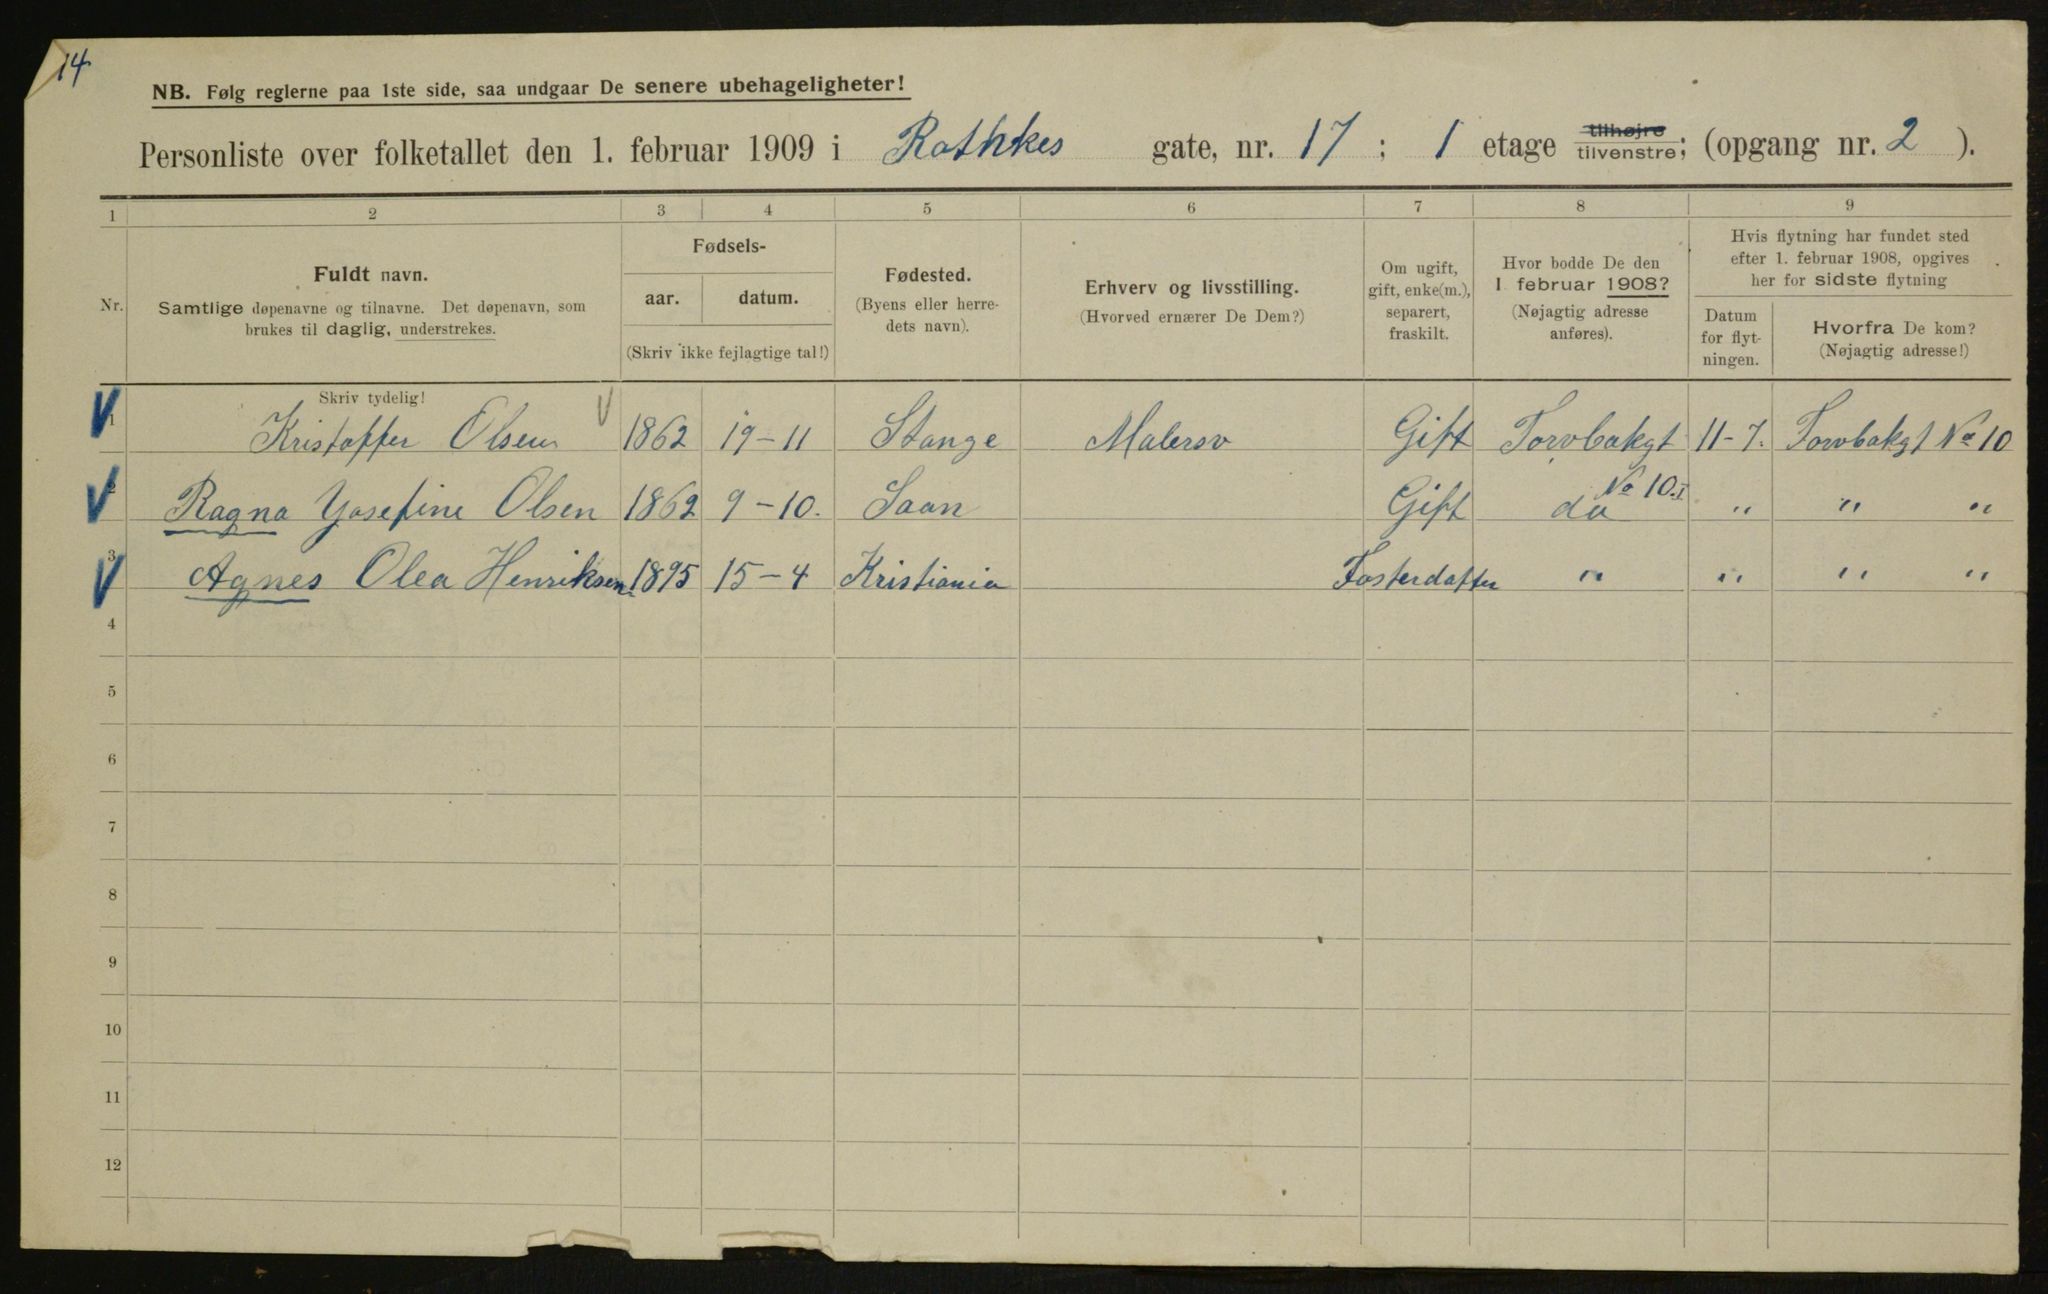 14
NB. Følg reglerne paa 1ste side, saa undgaar De senere ubehageligheter!
Personliste over folketallet den 1. februar 1909 i Rathkes gate, nr. 17 ; 1 etage tilhøjre tilvenstre; (opgang nr. 2 ).
1 2 3 4 5 6 7 8 9
Nr.
Fuldt navn.
Samtlige døpenavne og tilnavne. Det døpenavn, som
brukes til daglig, understrekes.
Fødsels-
aar. datum.
(Skriv ikke fejlagtige tal!)
Fødested.
(Byens eller herre-
dets navn).
Erhverv og livsstilling.
(Hvorved ernærer De Dem?)
Om ugift,
gift, enke(m.),
separert,
fraskilt.
Hvor bodde De den
1 februar 1908?
(Nøjagtig adresse
anføres).
Hvis flytning har fundet sted
efter 1. februar 1908, opgives
her for sidste flytning
Datum
for flyt-
ningen.
Hvorfra De kom?
(Nøjagtig adresse!)
Skriv tydelig!
1 Kristoffer Olsen 1862 19-11 Stange Malersv Gift Torvbakgt 11-7. Torvbakgt No 10
No 10.I
2 Ragna Josefine Olsen 1862 9-10. Gift do " " "
3 Agnes Olea Henriksen 1895 15-4 Kristiania Fosterdatter " " " "
4
5
6
7
8
9
10
11
12